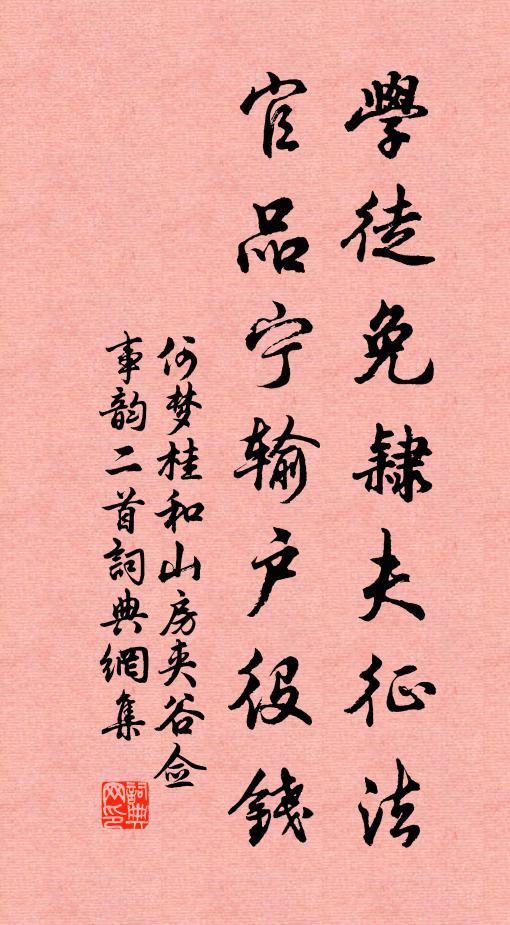 學徒免隸夫征法
官品宁输户役錢
何梦桂和山房夹谷佥
事韵二首詞典網集
詞典
网印